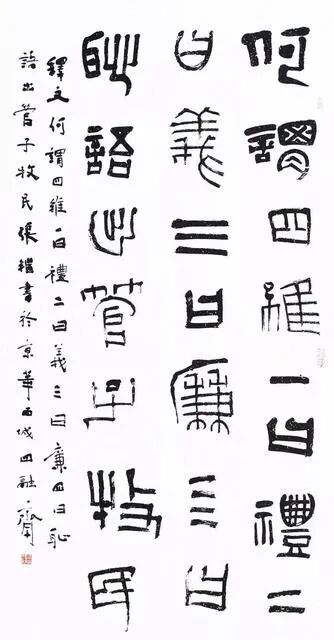 何謂四維一曰禮二
曰義三曰廉亖曰
恥語出管子牧民
釋文何謂四維一曰禮二曰義三曰廉四曰恥
語出管子牧民張繼書於京華西城四融齋